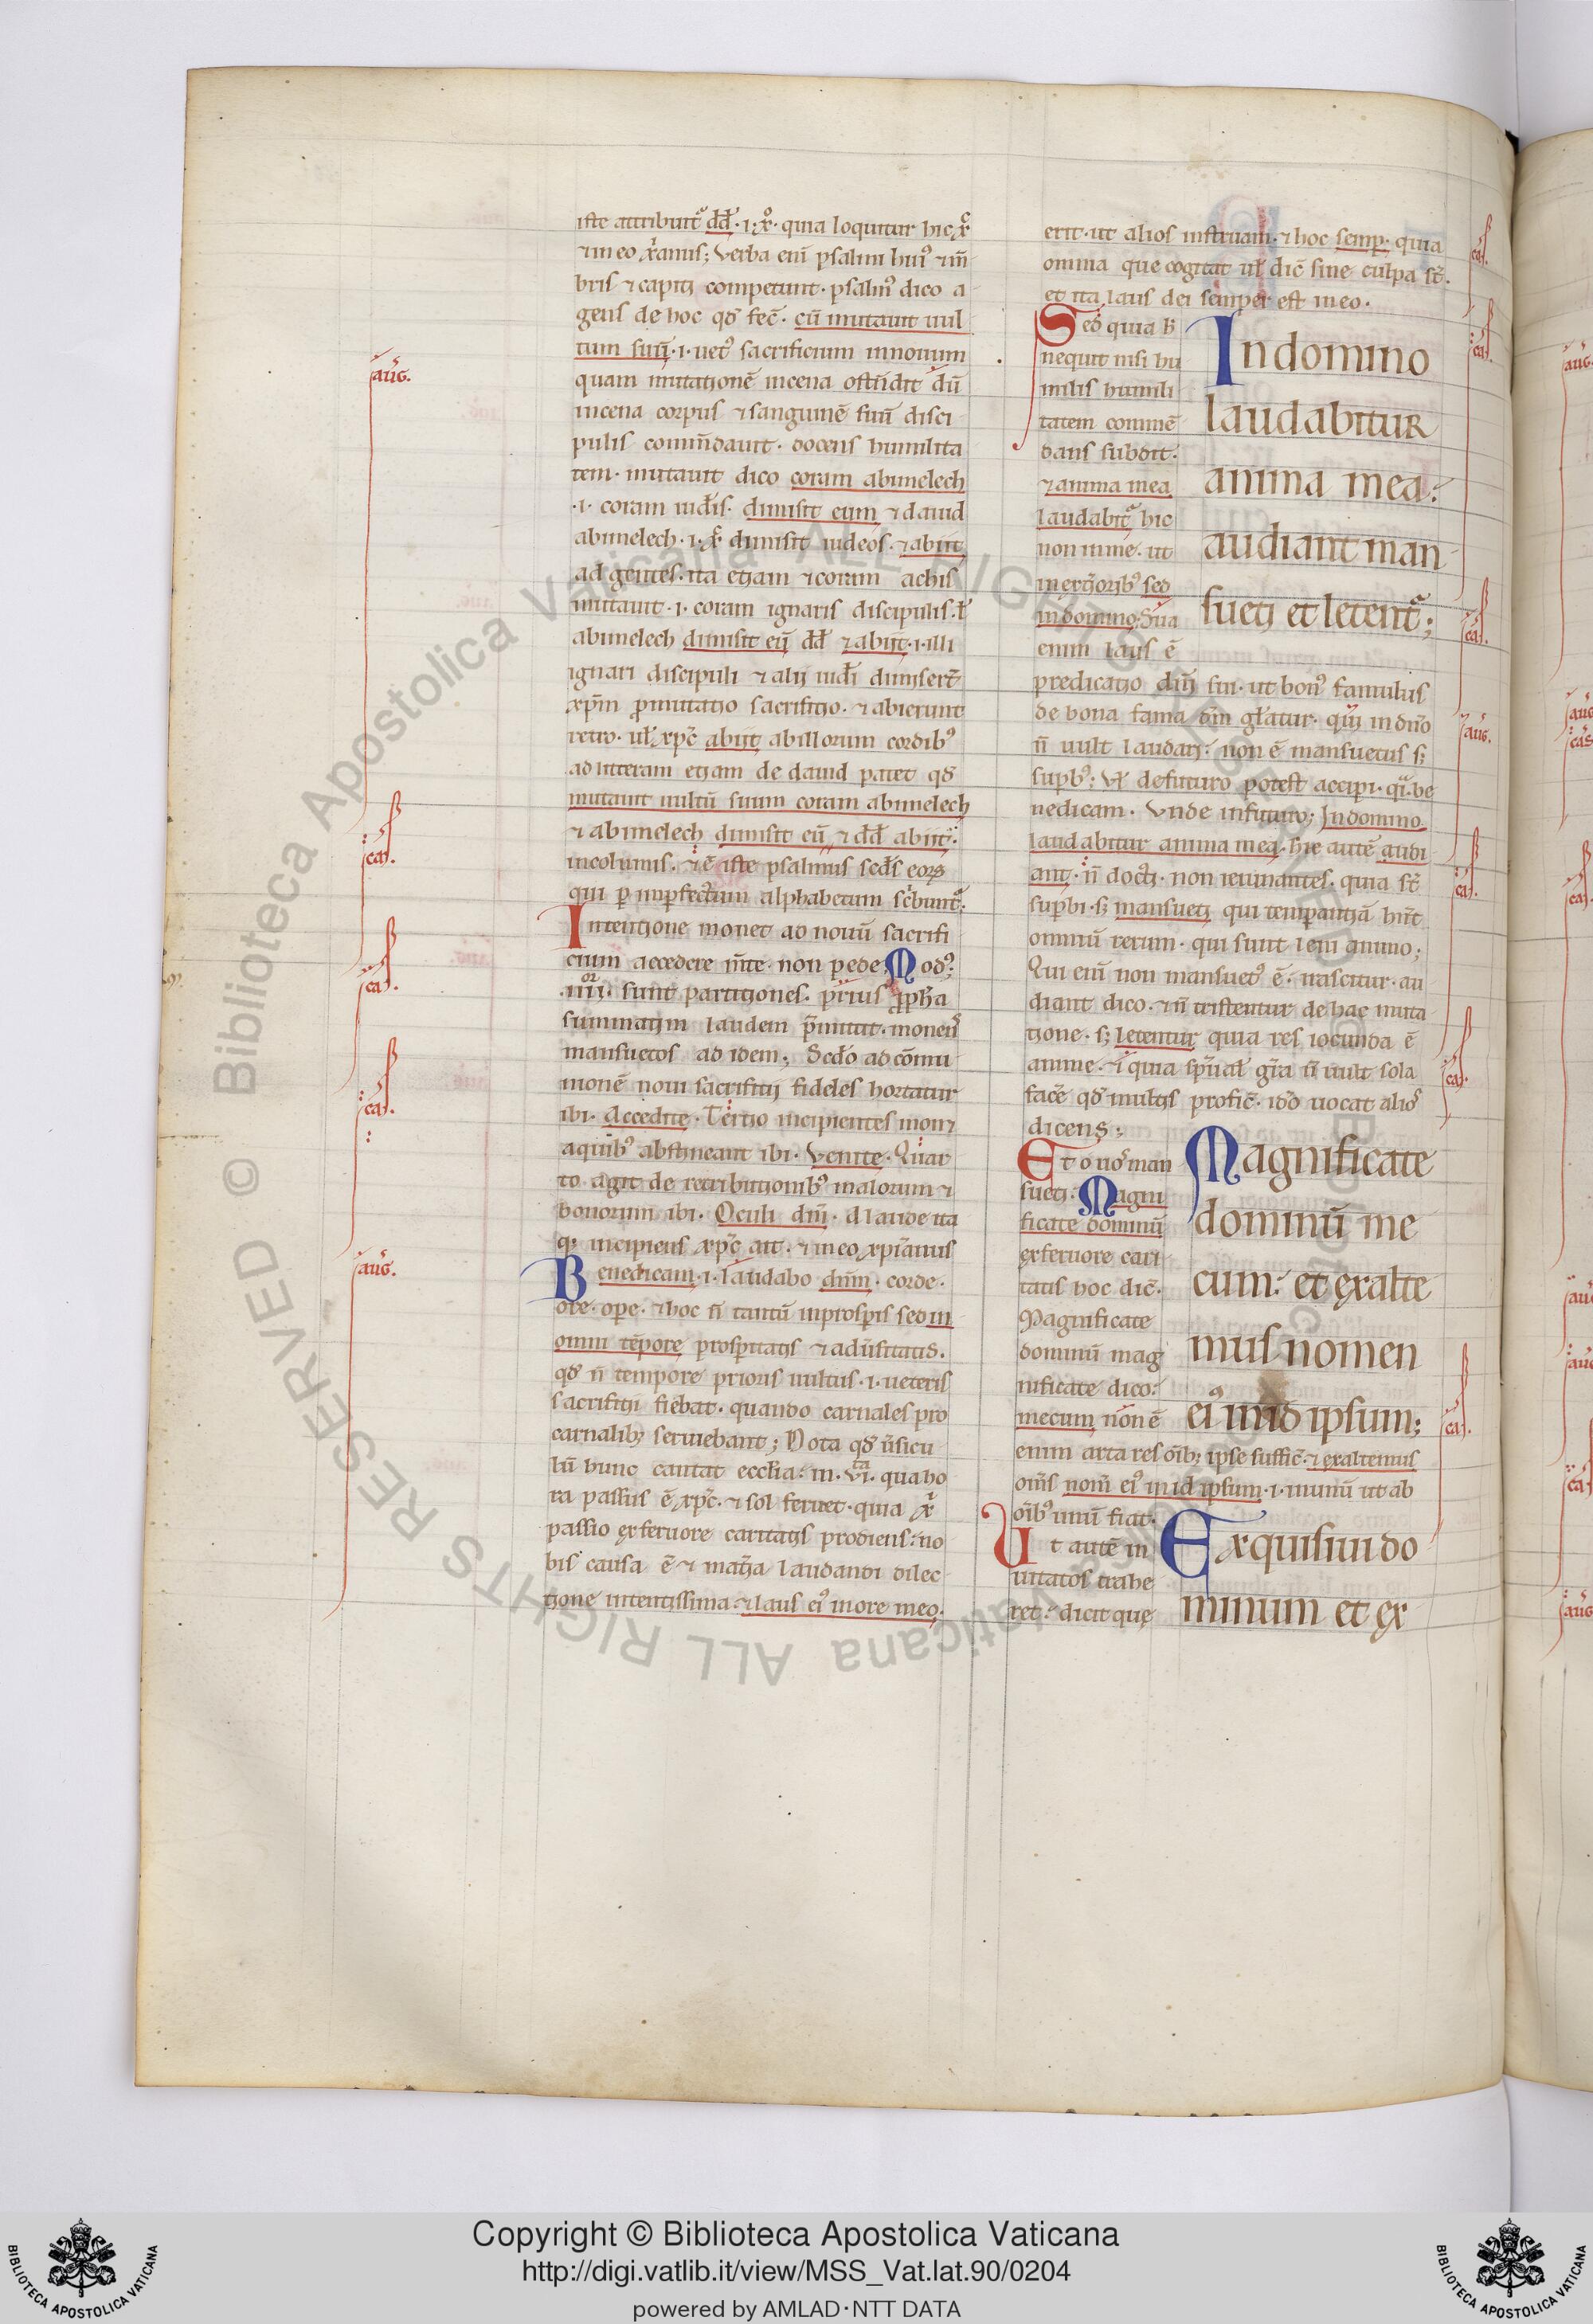 iste attribuit᷑ dd̄·i·xᵒ· quia loquitur hic xᶜ
⁊ in eo x̄anus; Verba eni psalmi huiꝰ ⁊ m̄
bris ⁊ capiti competunt· psalmꝰ dico a
gens de hoc qđ fec̄· cū mutauit uul
tum suū·i·uetꝰ sacrificium in nouum
quam mutationē in cena ostēdit dū
in cena corpus ⁊ sanguinē suū disci
pulis com̄dauit· docens humilita
tem· mutauit dico coram abimelech
·i· coram iud̄is· dimisit eum ⁊ dauid
abimelech·i·x̄· dimisit iudeos· ⁊ abiit
ad gentes· ita etiam ⁊ coram achis
mutauit·i·coram ignaris discipulis·ł
abimelech dimisit eū dd̄ ⁊ abiit·i·illi
ignari discipuli ⁊ alii iudi dimiser̄t
xp̄m p̄mutatio sacrifitio· ⁊ abierunt
retro· uł xp̄c abiit ab illorum cordibꝰ
ad litteram etiam de dauid patet qđ
mutauit uultū suum coram abimelech
⁊ abimelech dimisit eū ⁊ dd̄ abiit·
incolumis· ⁊ ē iste psalmus scd̄s eoꝝ
qui ꝑ imꝑfectum alphabetum sc̄bunt᷑;
Intentione monet ad nouū sacrifi
cium accedere m̄te· non pede Modꝰ·
·iiii· sunt partitiones· prius ꝓph̄a
summatim laudem p̄mittit· monens
mansuetos ad idem; Scd̄o ad cōmu
nionē noui sacrifitii fideles hortatur
ibi· Accedite· Tertio incipientes mon⁊
a quibꝰ abstineant ibi· Venite· Quar
to agit de retributionibꝰ malorum ⁊
bonorum ibi· Oculi dn̄i· A laude ita
qꝫ incipiens xp̄c ait· ⁊ in eo xp̄ianus
Benedicam·i·laudabo dn̄m· corde·
ore· oꝑe· ⁊ hoc n̄ tantū in prosꝑis sed in
omni tēpore prosꝑitatis ⁊ adūsitatis·
qđ n̄ tempore prioris uultus·i·ueteris
sacrifitii fiebat· quando carnales pro
carnalibꝫ seruiebant; Nota qđ ūsicu
lū hunc cantat eccl̄ia· in·vi·ta qua ho
ra passus ē xp̄c· ⁊ sol feruet· quia x̄
passio ex feruore caritatis prodiens· no
bis causa ē ⁊ mat̄ia laudandi dilec
tione intentissima ⁊ laus eiꝰ in ore meo·
erit· ut alios instruam· ⁊ hoc semꝑ· quia
omnia que cogitat uł dic̄ sine culpa st̄·
et ita laus dei semper est in eo·
Sed quia h̄
nequit nisi hu
milis humili
tatem commē
dans subdit·
⁊ anima mea
laudabit᷑ hic
non in me· ut
in ex̄ioribꝰ sed
in domino; Sua
enim laus ē
In domino
laudabitur
anima mea:
audiant man
sueti et letent᷑;
predicatio dn̄i sui· ut bonꝰ famulus
de bona fama dn̄i gl̄atur· qui in dn̄o
n̄ uult laudari· non ē mansuetus sꝫ
suꝑbꝰ; Vł de futuro potest accipi· qi·be
nedicam· Vnde in futuro; In domino
laudabitur anima mea· hic autē audi
ant· n̄ docti· non ieiunantes· quia st̄
suꝑbi· sꝫ mansueti qui temꝑantiā hn̄t
omniū rerum· qui sunt leni animo;
Qui eni non mansuetꝰ ē· irascitur· au
diant dico· ⁊ n̄ tristentur de hac muta
tione· sꝫ letentur quia res iocunda ē
anime· ⁊ quia sp̄ual gr̄a n̄ uult sola
facē qđ multis profic̄· id̄o uocat aliꝰ
dicens;
Et o uoˢ man
sueti· Magni
ficate dominū
ex feruore cari
tatis hoc dic̄·
Magnificate
dominū mag
nificate dico·
mecum non ē
Magnificate
dominū me
cum: et exalte
mus nomen
eiꝰ in id ipsum;
enim arta res oībꝫ ipse suffic̄· ⁊ exaltemus
om̄s nom̄ eiꝰ in id ipsum·i·inunū ut ab
oībꝰ unū fiat·
Ut autē in
uitatos trahe
ret· dicit que
Exquisiui do
minum et ex
aug̅.
ca̅s.
ca̅s.
ca̅s.
aug̅.
ca̅s.
ca̅s.
ca̅s.
aug̅.
ca̅s.
ca̅s.
ca̅s.
Copyright © Biblioteca Apostolica Vaticana
http://digi.vatlib.it/view/MSS_Vat.lat.90/0204
powered by AMLAD·NTT DATA
BIBLIOTECA APOSTOLICA VATICANA
BIBLIOTECA APOSTOLICA VATICANA
Biblioteca Apostolica Vaticana ALL RIGHTS RESERVED ©